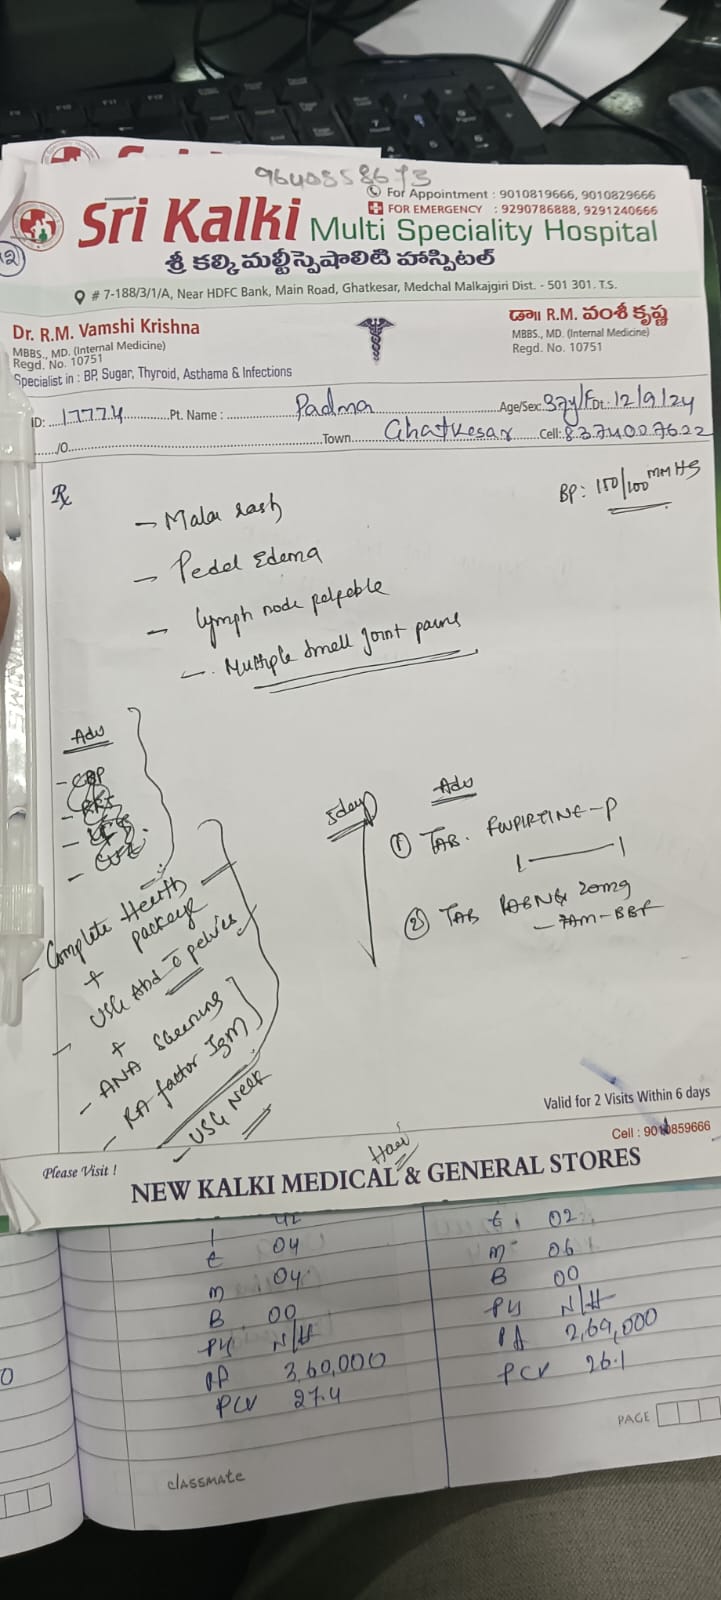 9640558673
For Appointment : 9010819666, 9010829666
FOR EMERGENCY : 9290786888, 9291240666
Sri Kalki Multi Speciality Hospital
శ్రీ కల్కి మల్టీస్పెషాలిటి హాస్పిటల్
# 7-188/3/1/A, Near HDFC Bank, Main Road, Ghatkesar, Medchal Malkajgiri Dist. - 501 301. T.S.
Dr. R.M. Vamshi Krishna
MBBS., MD. (Internal Medicine)
Regd. No. 10751
Specialist in : BP, Sugar, Thyroid, Asthama & Infections
డా॥ R.M. వంశీ కృష్ణ
MBBS., MD. (Internal Medicine)
Regd. No. 10751
ID: 17774 Pt. Name : Padma Age/Sex: 37y/F Dt: 12/9/24
/O. Town Ghatkesar Cell: 8374007622
Rx
BP: 150/100 MMHG
- Malar rash
- Pedal Edema
- Lymph node palpable
- Multiple small joint pains
Adv
- CBP
- Complete Health package
+
- USG Abd c̄ pelvics
+
- ANA Screening
- RA factor IgM
- USG Neck
5days
Adv
① TAB. FWPIRTINE-P
1 — 1
② TAB 20mg
- 7AM-BBF
Valid for 2 Visits Within 6 days
Please Visit !
Cell : 9010859666
NEW KALKI MEDICAL & GENERAL STORES
E 04
m 04
B 00
N/H
3,60,000
PCV 27.4
E 02
m 06
B 00
N/H
2,69,000
PCV 26.1
PAGE
classmate